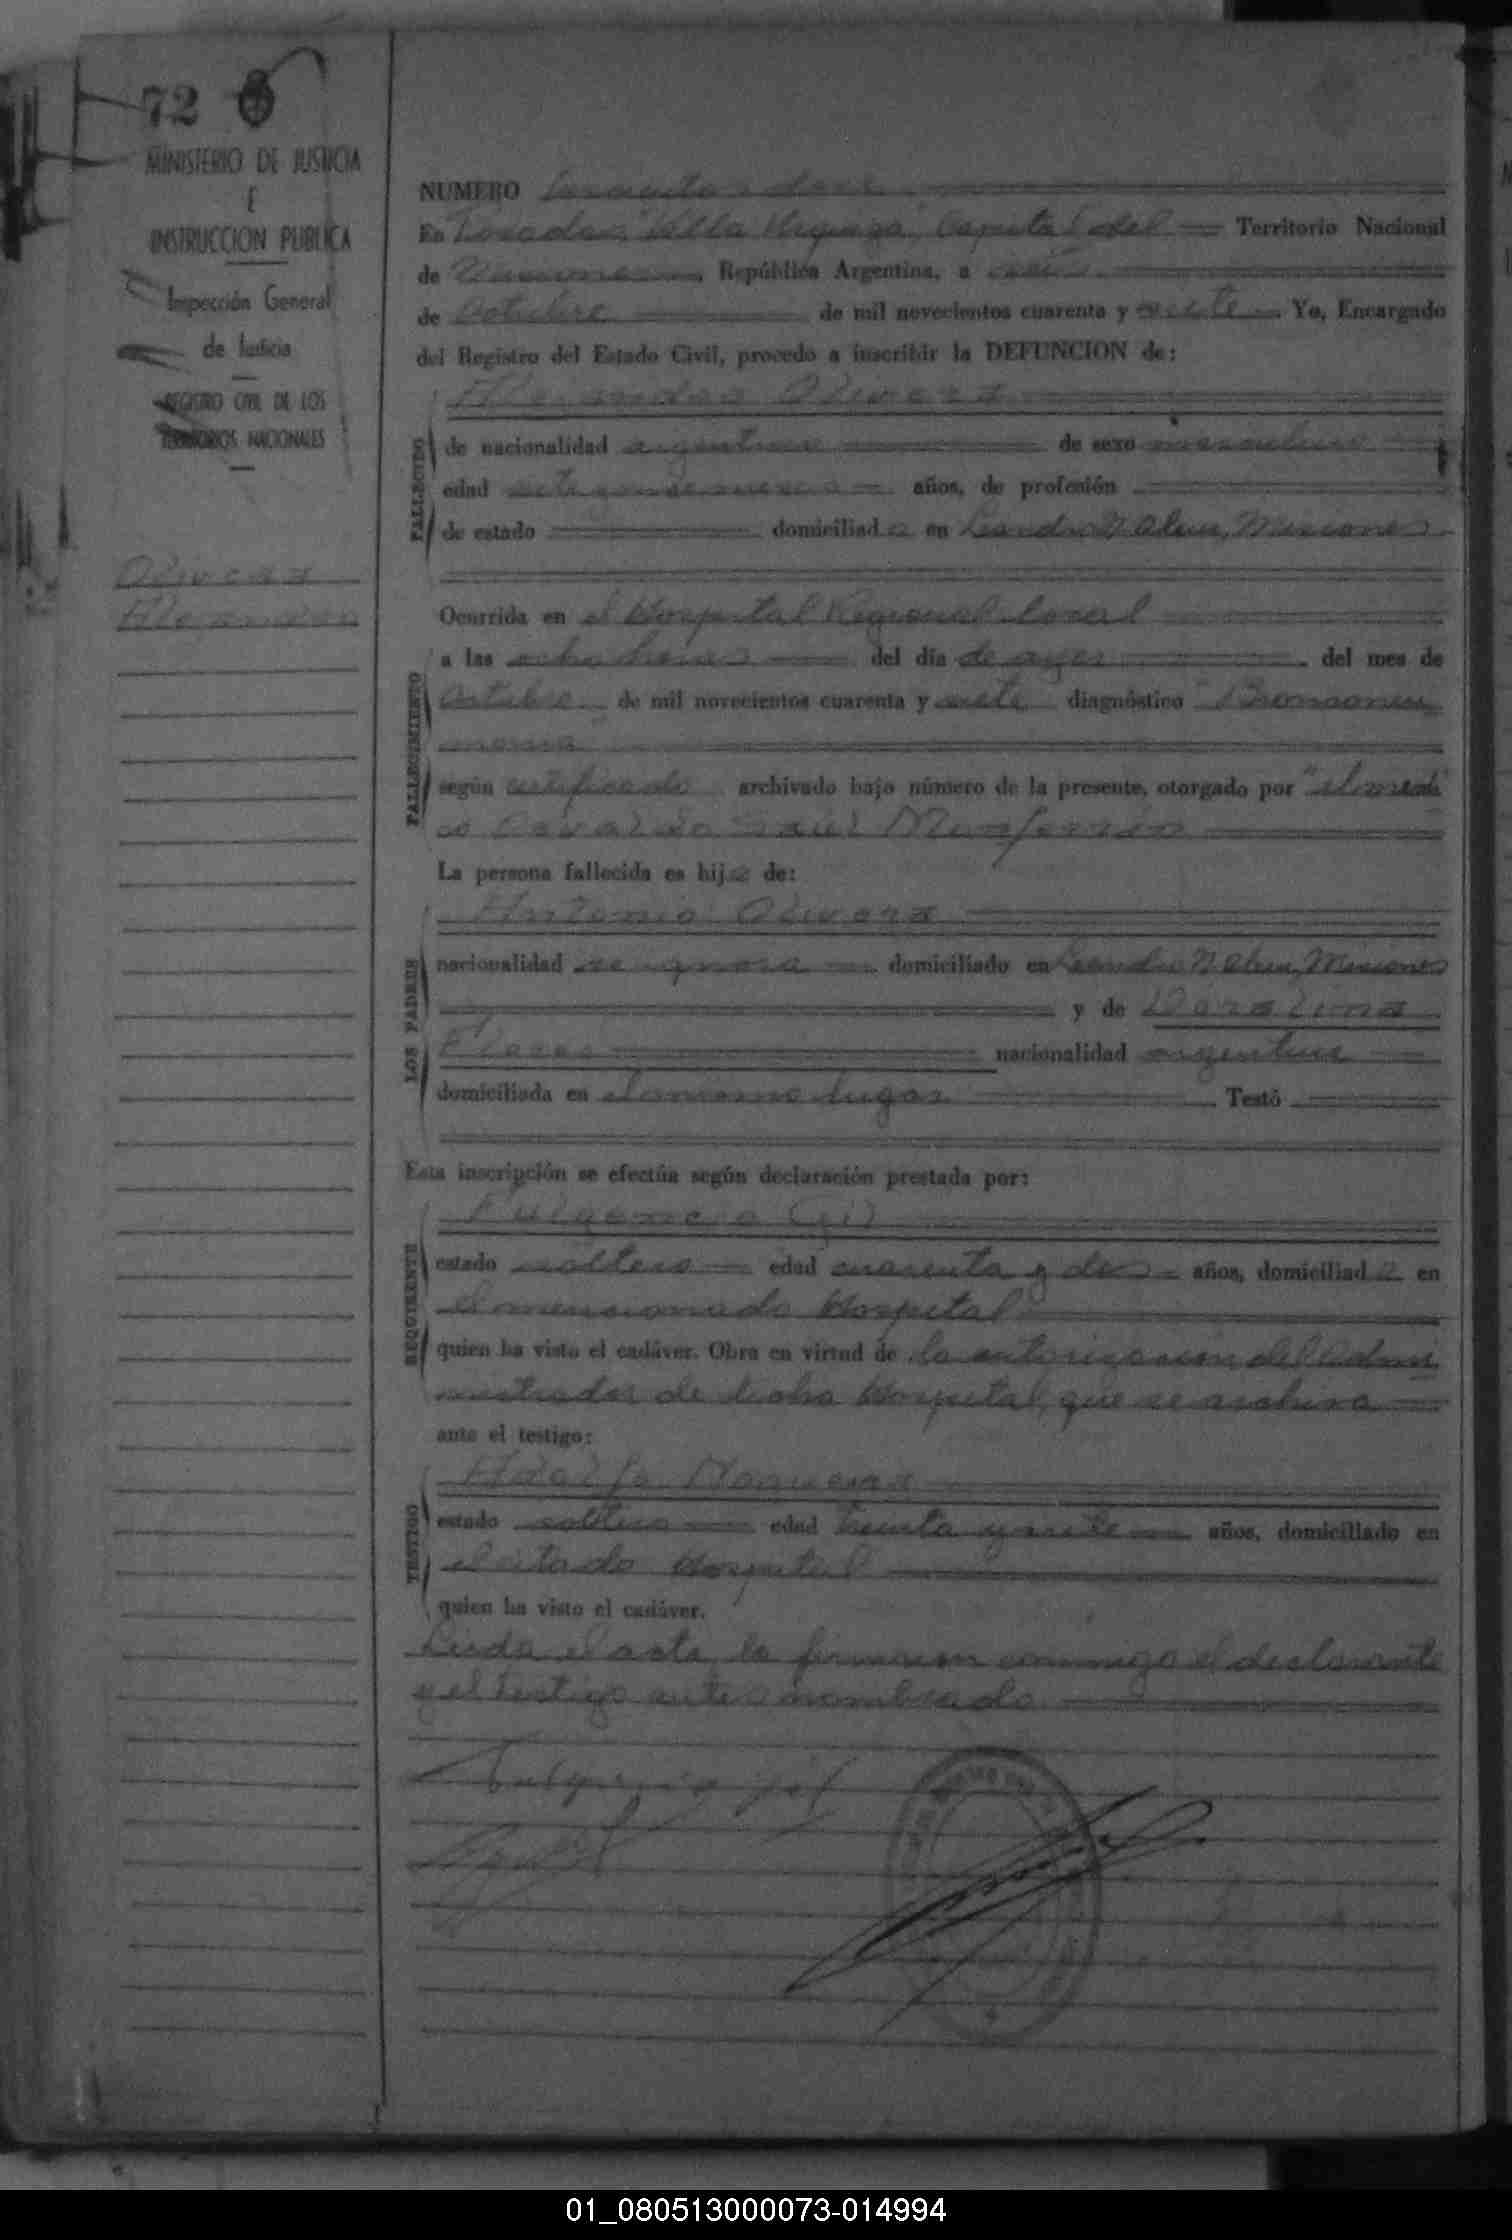 72
MINISTERIO DE JUSTICIA
E
INSTRUCCION PUBLICA
Inspección General
de Justicia
REGISTRO CIVIL DE LOS
TERRITORIOS NACIONALES
Olivera
NUMERO
En Posadas, Villa Urquiza, Capital del Territorio Nacional
de Misiones, República Argentina, a
de Octubre de mil novecientos cuarenta y siete Yo, Encargado
del Registro del Estado Civil, procedo a inscribir la DEFUNCION de:
Olivera
FALLECIDO
de nacionalidad argentina de sexo masculino
edad años, de profesión
de estado domiciliado en Leandro N Alem, Misiones
FALLECIMIENTO
Ocurrida en el Hospital Regional local
a las ocho horas del día de ayer del mes de
Octubre de mil novecientos cuarenta y siete diagnóstico "Bronconeu
monia
según certificado archivado bajo número de la presente, otorgado por "el medi
co Osvaldo Saúl Monferrán
La persona fallecida es hijo de:
LOS PADRES
Antonio Olivera
nacionalidad se ignora domiciliado en Leandro N Alem, Misiones
y de Doralina
nacionalidad argentina
domiciliada en el mismo lugar Testó
Esta inscripción se efectúa según declaración prestada por:
REQUIRENTE
Fulgencio Gil
estado soltero edad cuarenta y dos años, domiciliado en
el mencionado Hospital
quien ha visto el cadáver. Obra en virtud de la autorización del Admi
nistrador de dicho Hospital, que se archiva
ante el testigo:
TESTIGO
Adolfo
estado soltero edad treinta y siete años, domiciliado en
el citado Hospital
quien ha visto el cadáver.
Leída el acta, la firmaron conmigo el declarante
y el testigo antes nombrado
Fulgencio gil
01_080513000073-014994